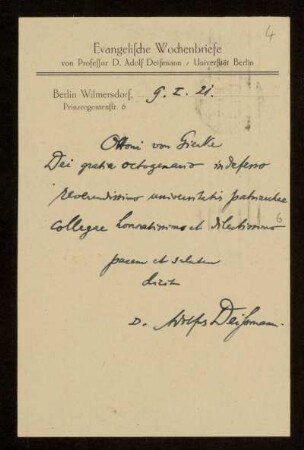 4
Evangelische Wochenbriefe
von Professor D. Adolf Deißmann / Universität Berlin
Berlin Wilmersdorf,
Prinzregentenstr. 6
9. I. 21.
Ottoni von Gierke
Dei gratia octogenario indefesso
reverendissimo universitatis patriarchae
collegae honoratissimo et dilectissimo
6
pacem et salutem
dicit
D. Adolfus Deißmann.